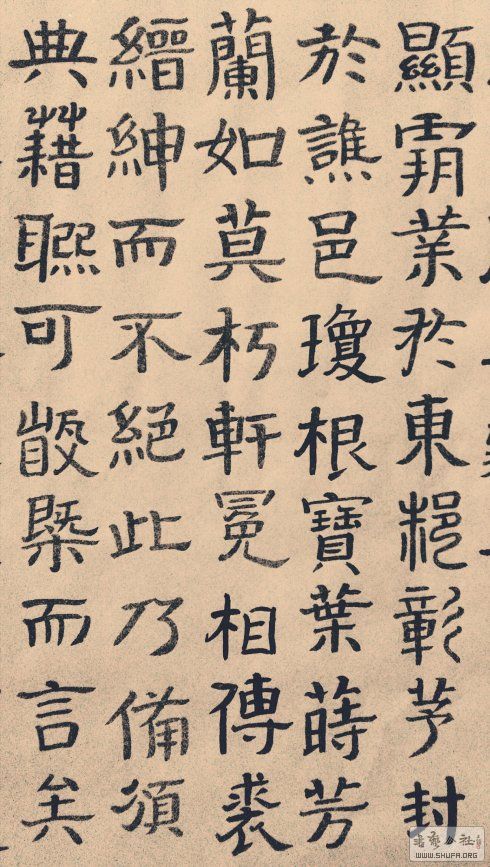 顯霸業於東邾彰茅封
於譙邑瓊根寶葉蒔芳
蘭如莫朽軒冕相傳裘
縉紳而不絕此乃備須
典籍聊可槩而言矣
書藝公社
WWW.SHUFA.ORG